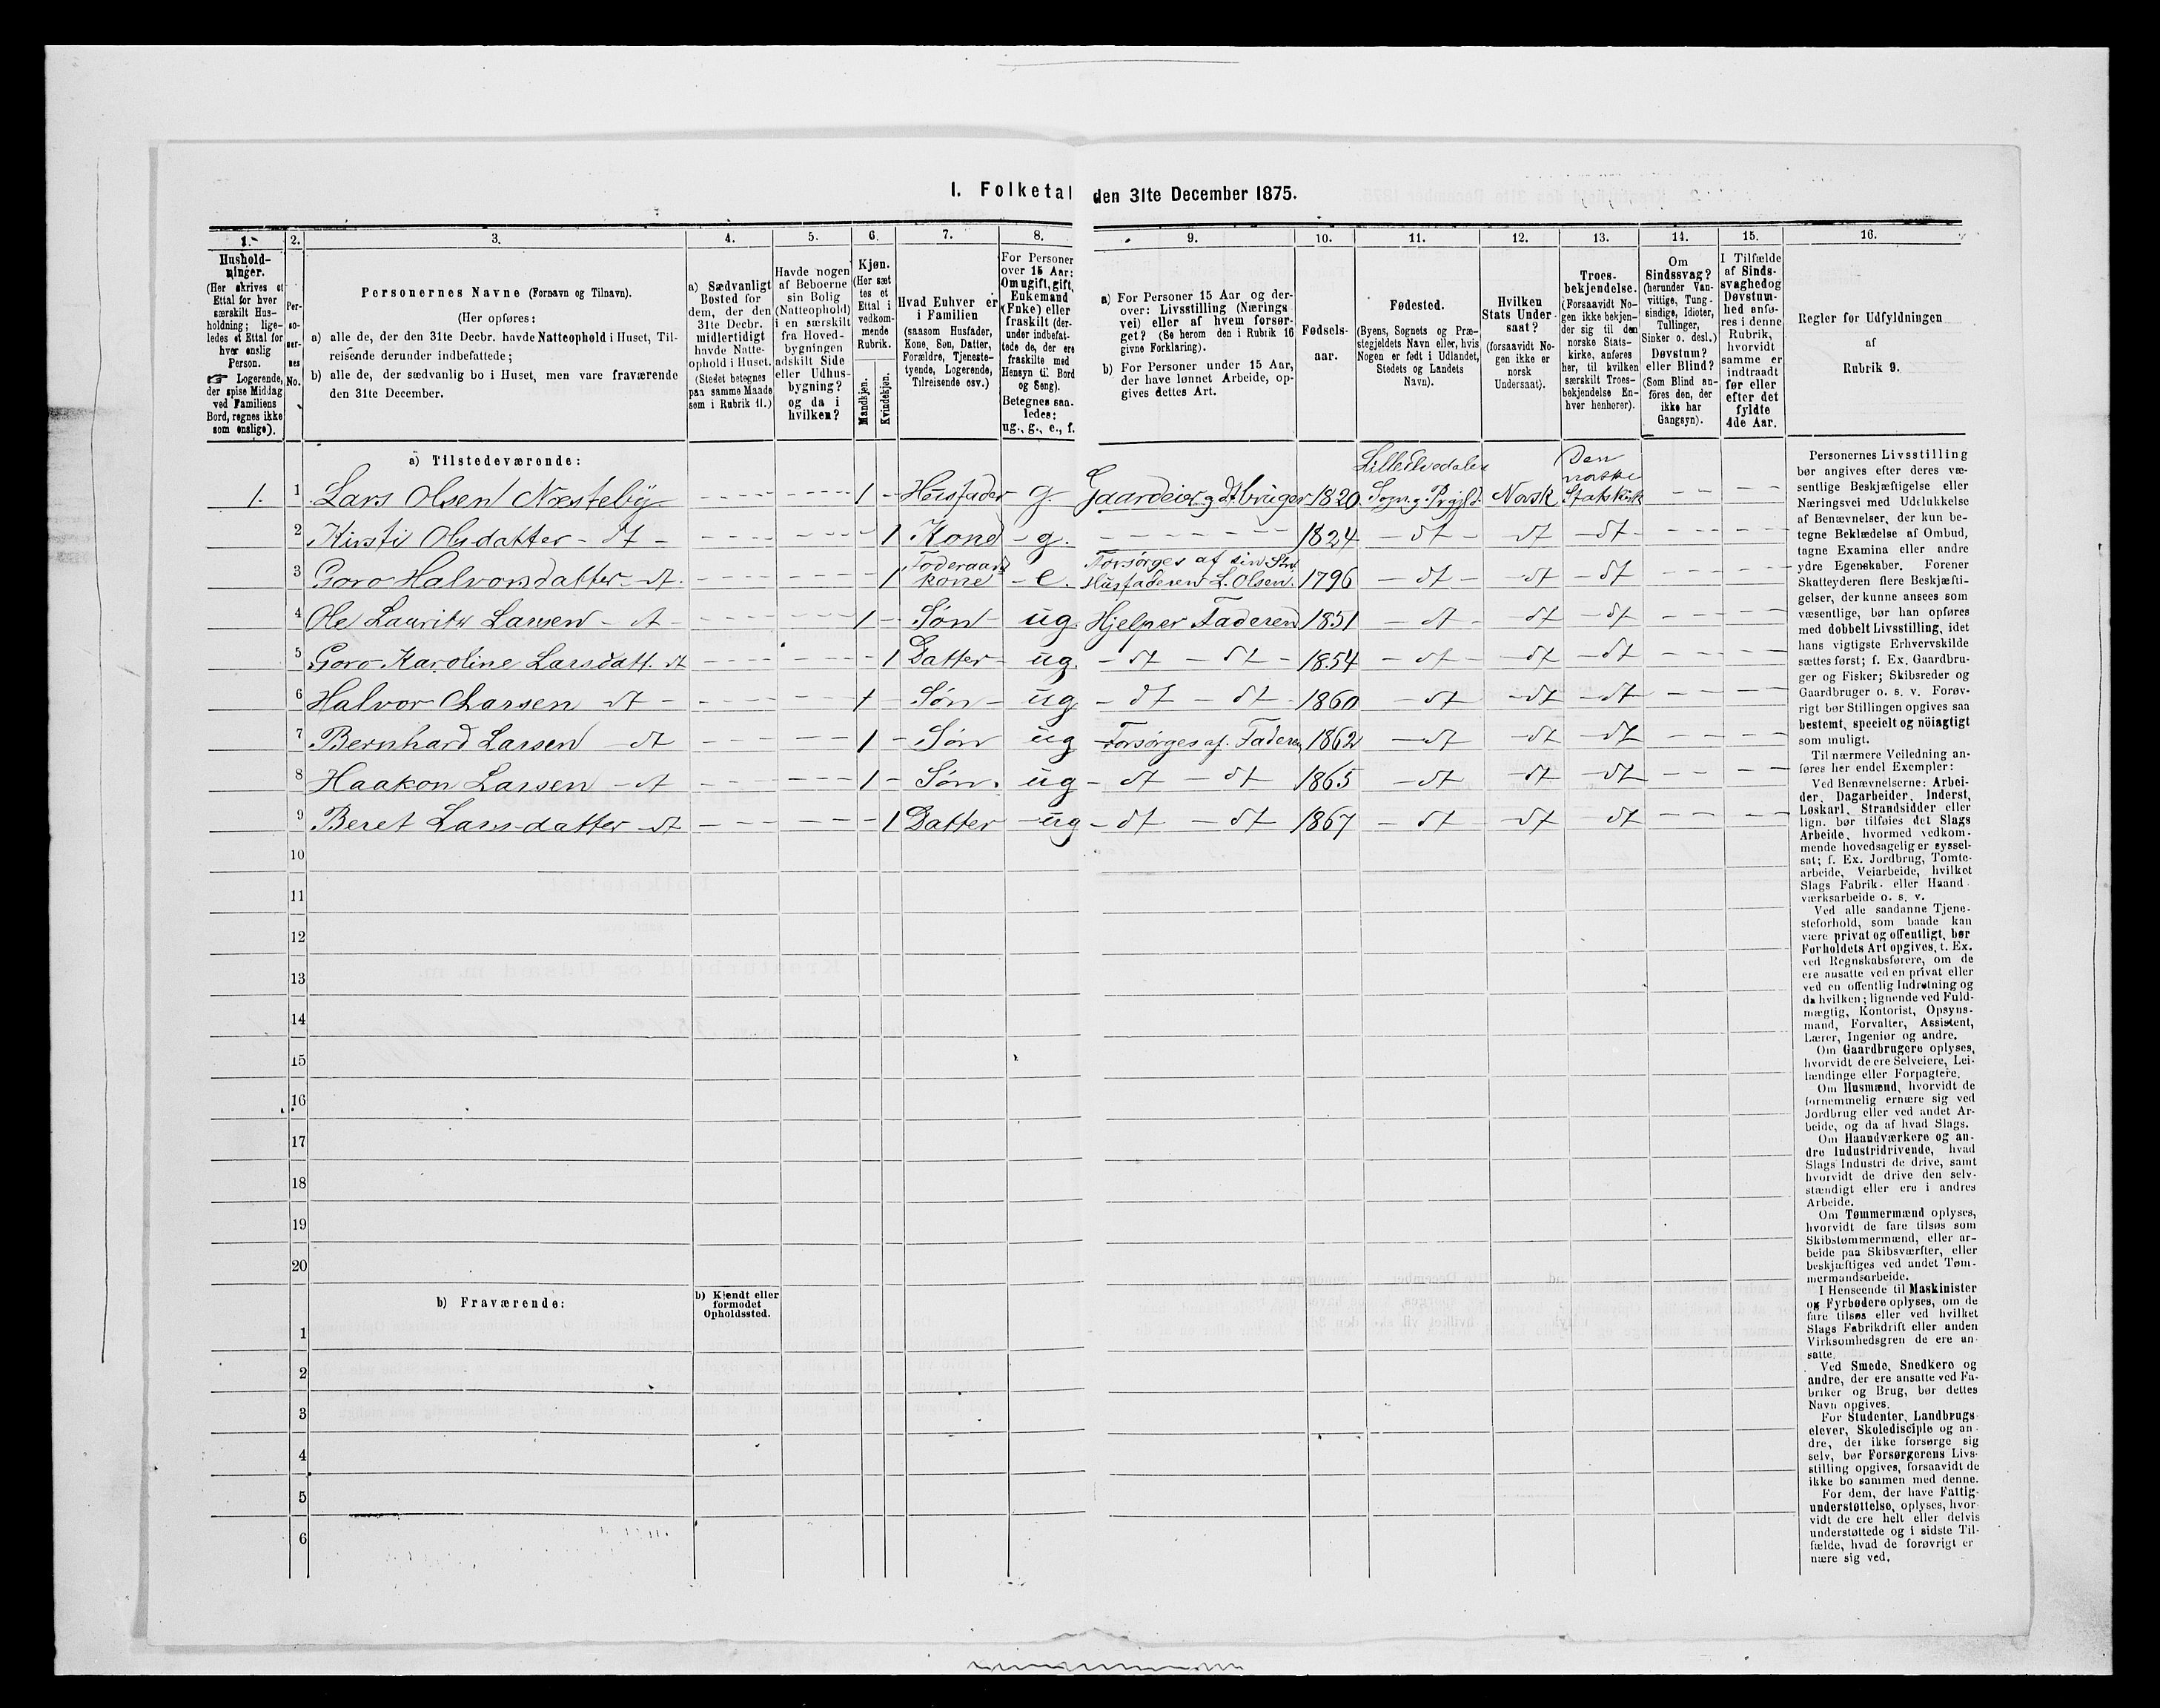 I. Folketal den 31te December 1875.
1. 2. 3. 4. 5. 6. 7. 8. 9. 10. 11. 12. 13. 14. 15. 16.
Hushold-
ninger.
(Her skrives et
Ettal for hver
særskilt Hus-
holdning; lige-
ledes et Ettal for
hver enslig
Person.
☞ Logerende,
der spise Middag
ved Familiens
Bord, regnes ikke
som enslige).
Per-
so-
ner-
nes
No.
Personernes Navne (Fornavn og Tilnavn).
(Her opføres:
a) alle de, der den 31te Decbr. havde Natteophold i Huset, Til-
reisende derunder indbefattede;
b) alle de, der sædvanlig bo i Huset, men vare fraværende
den 31te December.
a) Sædvanligt
Bosted for
dem, der den
31te Decbr.
midlertidigt
havde Natte-
ophold i Huset.
(Stedet betegnes
paa samme Maade
som i Rubrik 11.)
Havde nogen
af Beboerne
sin Bolig
(Natteophold)
i en særskilt
fra Hoved-
bygningen
adskilt Side
eller Udhus-
bygning?
og da i
hvilken?
Kjøn.
(Her sæt
tes et
Ettal i
vedkom-
mende
Rubrik.
Mandkjøn.
Kvindekjøn.
Hvad Enhver er
i Familien
(saasom Husfader,
Kone, Søn, Datter,
Forældre, Tjeneste-
tyende, Logerende,
Tilreisende osv.)
For Personer
over 15 Aar:
Om ugift, gift,
Enkemand
(Enke) eller
fraskilt (der-
under indbefat-
tede de, der ere
fraskilte med
Hensyn til Bord
og Seng).
Betegnes saa-
ledes:
ug., g., e., f.
a) For Personer 15 Aar og der-
over: Livsstilling (Nærings
vei) eller af hvem forsør-
get? (Se herom den i Rubrik 16
givne Forklaring).
b) For Personer under 15 Aar,
der have lønnet Arbeide, op-
gives dettes Art.
Fødsels-
aar.
Fødested.
(Byens, Sognets og Præ-
stegjeldets Navn eller, hvis
Nogen er født i Udlandet,
Stedets og Landets
Navn).
Hvilken
Stats Under-
saat?
(forsaavidt No-
gen ikke er
norsk
Undersaat).
Troes-
bekjendelse.
(Forsaavidt No-
gen ikke bekjen-
der sig til den
norske Stats-
kirke, anføres
her, til hvilken
særskilt Troes-
bekjendelse En-
hver henhører).
Om
Sindssvag?
(herunder Van-
vittige, Tung-
sindige, Idioter,
Tullinger,
Sinker o. desl.)
Døvstum?
eller Blind?
(Som Blind an-
føres den, der
ikke har
Gangsyn).
I Tilfælde
af Sinds-
svaghed og
Døvstum-
hed anfø-
res i denne
Rubrik,
hvorvidt
samme er
indtraadt
før eller
efter det
fyldte
4de Aar.
Regler for Udfyldningen
af
Rubrik 9.
a) Tilstedeværende:
Lilleelvedalen Den norske
1. 1 Lars Olsen Næsteby 1 Husfader g. Gaardeier og dt bruger 1820 Sogn og Prgjld. Norsk Statskirk
2 Kirsti Olsdatter - dt - 1 Kone g. 1824 dt dt dt
3 Goro Halvorsdatter dt. 1 Føderaads kone e. Forsørges af sin Søn Husfaderen L. Olsen. 1796 dt dt dt
4 Ole Lauritz Larsen - dt - 1 Søn ug. Hjelper Faderen 1851 dt dt dt
5 Goro Karoline Larsdatt. dt 1 Datter ug. dt dt 1854 dt dt dt
6 Halvor Larsen dt 1 Søn ug dt dt 1860 dt dt dt
7 Bernhard Larsen dt 1 Søn ug Forsørges af Faderen 1862 dt dt dt
8 Haakon Larsen dt 1 Søn. ug dt dt 1865 dt dt dt
9 Beret Larsdatter dt 1 Datter ug dt dt 1867 dt dt dt
10
11
12
13
14
15
16
17
18
19
20
b) Fraværende:
b) Kjendt eller
formodet
Opholdssted.
1
2
3
4
5
6
Personernes Livsstilling
bør angives efter deres væ-
sentlige Beskjæftigelse eller
Næringsvei med Udelukkelse
af Benævnelser, der kun be-
tegne Beklædelse af Ombud,
tagne Examina eller andre
ydre Egenskaber. Forener
Skatteyderen flere Beskjæfti-
gelser, der kunne ansees som
væsentlige, bør han opføres
med dobbelt Livsstilling, idet
hans vigtigste Erhvervskilde
sættes først; f. Ex. Gaardbru-
ger og Fisker; Skibsreder og
Gaardbruger o. s. v. Forøv-
rigt bør Stillingen opgives saa
bestemt, specielt og nöiagtigt
som muligt.
Til nærmere Veiledning an-
føres her endel Exempler:
Ved Benævnelserne: Arbei-
der, Dagarbeider, Inderst,
Løskarl, Strandsidder eller
lign. bør tilføies det Slags
Arbeide, hvormed vedkom-
mende hovedsagelig er syssel-
sat; f. Ex. Jordbrug, Tomte-
arbeide, Veiarbeide, hvilket
Slags Fabrik- eller Haand-
værksarbeide o. s. v.
Ved alle saadanne Tjene-
steforhold, som baade kan
være privat og offentligt, bør
Forholdets Art opgives, t. Ex.
ved Regnskabsførere, om de
ere ansatte ved en privat eller
ved en offentlig Indretning og
da hvilken; lignende ved Fuld-
mægtig, Kontorist, Opsyns-
mand, Forvalter, Assistent,
Lærer, Ingeniør og andre.
Om Gaardbrugere oplyses,
hvorvidt de ere Selveiere, Lei-
lændinge eller Forpagtere.
Om Husmænd, hvorvidt de
fornemmelig ernære sig ved
Jordbrug eller ved andet Ar-
beide, og da af hvad Slags.
Om Haandværkere og an-
dre Industridrivende, hvad
Slags Industri de drive, samt
hvorvidt de drive den selv-
stændigt eller ere i andres
Arbeide.
Om Tømmermænd oplyses,
hvorvidt de fare tilsøs som
Skibstømmermænd, eller ar-
beide paa Skibsværfter, eller
beskjæftiges ved andet Tøm-
mermandsarbeide.
I Henseende til Maskinister
og Fyrbødere oplyses, om de
fare tilsøs eller ved hvilket
Slags Fabrikdrift eller anden
Virksomhedsgren de ere an-
satte.
Ved Smede, Snedkere og
andre, der ere ansatte ved Fa-
briker og Brug, bør dettes
Navn opgives.
For Studenter, Landbrugs-
elever, Skoledisciple og an-
dre, der ikke forsørge sig
selv, bør Forsørgerens Livs-
stilling opgives, forsaavidt de
ikke bo sammen med denne.
For dem, der have Fattig-
understøttelse, oplyses, hvor-
vidt de ere helt eller delvis
understøttede og i sidste Til-
fælde, hvad de forøvrigt er
nære sig ved.